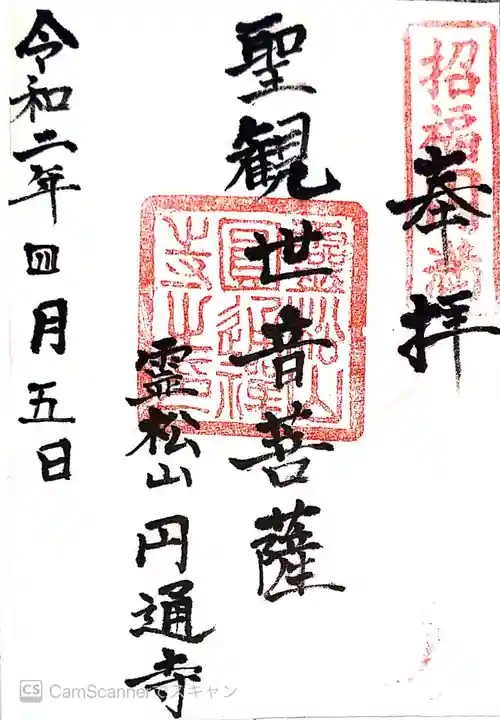 奉拝
聖観世音菩薩
霊松山 円通寺
令和二年四月五日
招福
CS CamScannerでスキャン